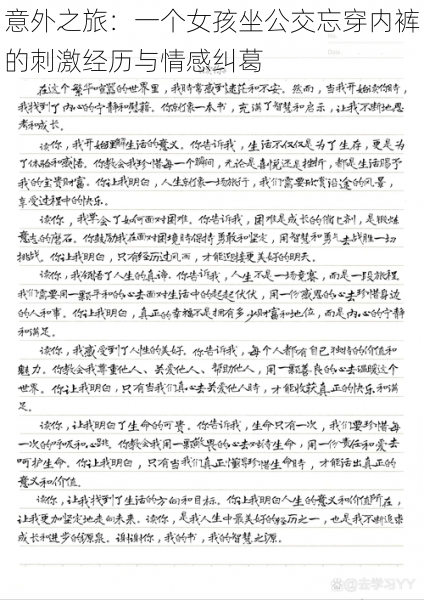 意外之旅：一个女孩坐公交忘穿内裤
的刺激经历与情感纠葛
在这个繁华喧嚣的世界里，我时常感到迷茫和不安。然而，当我开始读你时，
我找到了内心的宁静和慰藉。你就像一本书，充满了智慧和启示，让我不断地思
考和成长。
读你，我开始理解生活的意义。你告诉我，生活不仅仅是为了生存，更是为
了体验和感悟。你教会我珍惜每一个瞬间，无论是喜悦还是挫折，都是生活赐予
我的宝贵财富。你让我明白，人生就像一场旅行，我们需要欣赏沿途的风景，
享受过程中的快乐。
读你，我学会了如何面对困难。你告诉我，困难是成长的催化剂，是锻炼
意志的磨石。你鼓励我在面对困境时保持勇敢和坚定，用智慧和勇气去战胜一切
挑战。你让我明白，只有经历过风雨，才能迎接更美好的明天。
读你，我领悟了人生的真谛。你告诉我，人生不是一场竞赛，而是一段旅程。
我们需要用一颗平和的心去面对生活中的起起伏伏，用一份感恩的心去珍惜身边
的人和事。你让我明白，真正的幸福不是拥有多少财富和地位，而是内心的宁静
和满足。
读你，我感受到了人性的美好。你告诉我，每个人都有自己独特的价值和
魅力。你教会我尊重他人、关爱他人、帮助他人，用一颗善良的心去温暖这个
世界。你让我明白，只有当我们真心去关爱他人时，才能收获真正的快乐和满
足。
读你，让我明白了生命的可贵。你告诉我，生命只有一次，我们要珍惜每
一次的呼吸和心跳。你教会我用一颗敬畏的心去对待生命，用一份责任和爱去
呵护生命。你让我明白，只有当我们真正懂得珍惜生命时，才能活出真正的
意义和价值。
读你，让我找到了生活的方向和目标。你让我明白人生的意义和价值所在，
让我更加坚定地走向未来。读你，是我人生中最美好的经历之一，也是我不断追求
成长和进步的源泉。谢谢你，我的书，我的智慧之源。
@去学习YY